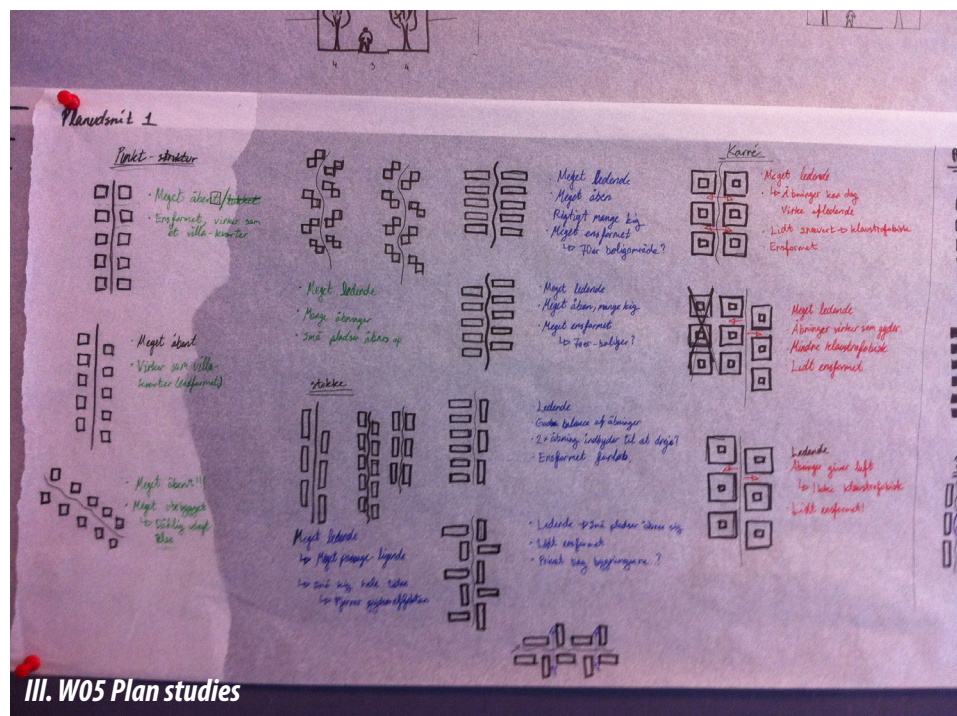 4 3 4
Planudsnit 1
Punkt-struktur
· Meget åben
· Ensformet, virker som
et villa-kvarter
· Meget åbent
· Virker som villa-
kvarter (ensformet)
· Meget åbent!!
· Meget
· Meget ledende
· Mange åbninger
· Små pladser åbnes op
stokke
Meget ledende
↳ Meget passage-lignende
↳ Små kig hele tiden
↳ Fjerner
· Meget ledende
· Meget åben
Rigtigt mange kig
· Meget ensformet
↳ 70er boligområde?
· Meget ledende
· Meget åben, mange kig
· Meget ensformet
↳ 70er-boliger?
· Ledende
· balance af åbninger
· 2x åbning indbyder til at dreje?
· Ensformet forløb.
· Ledende → Små pladser åbner sig
· Lidt ensformet
· Privat bag bygningerne?
Karré
· Meget ledende
↳ Åbninger kan dog
Virke afledende
· Lidt snævert → klaustrofobisk
· Ensformet
Meget ledende
Åbninger virker som gyder.
Mindre klaustrofobisk
Lidt ensformet
Ledende
Åbninger giver luft
↳ Ikke klaustrofobisk
Lidt ensformet!
III. W05 Plan studies